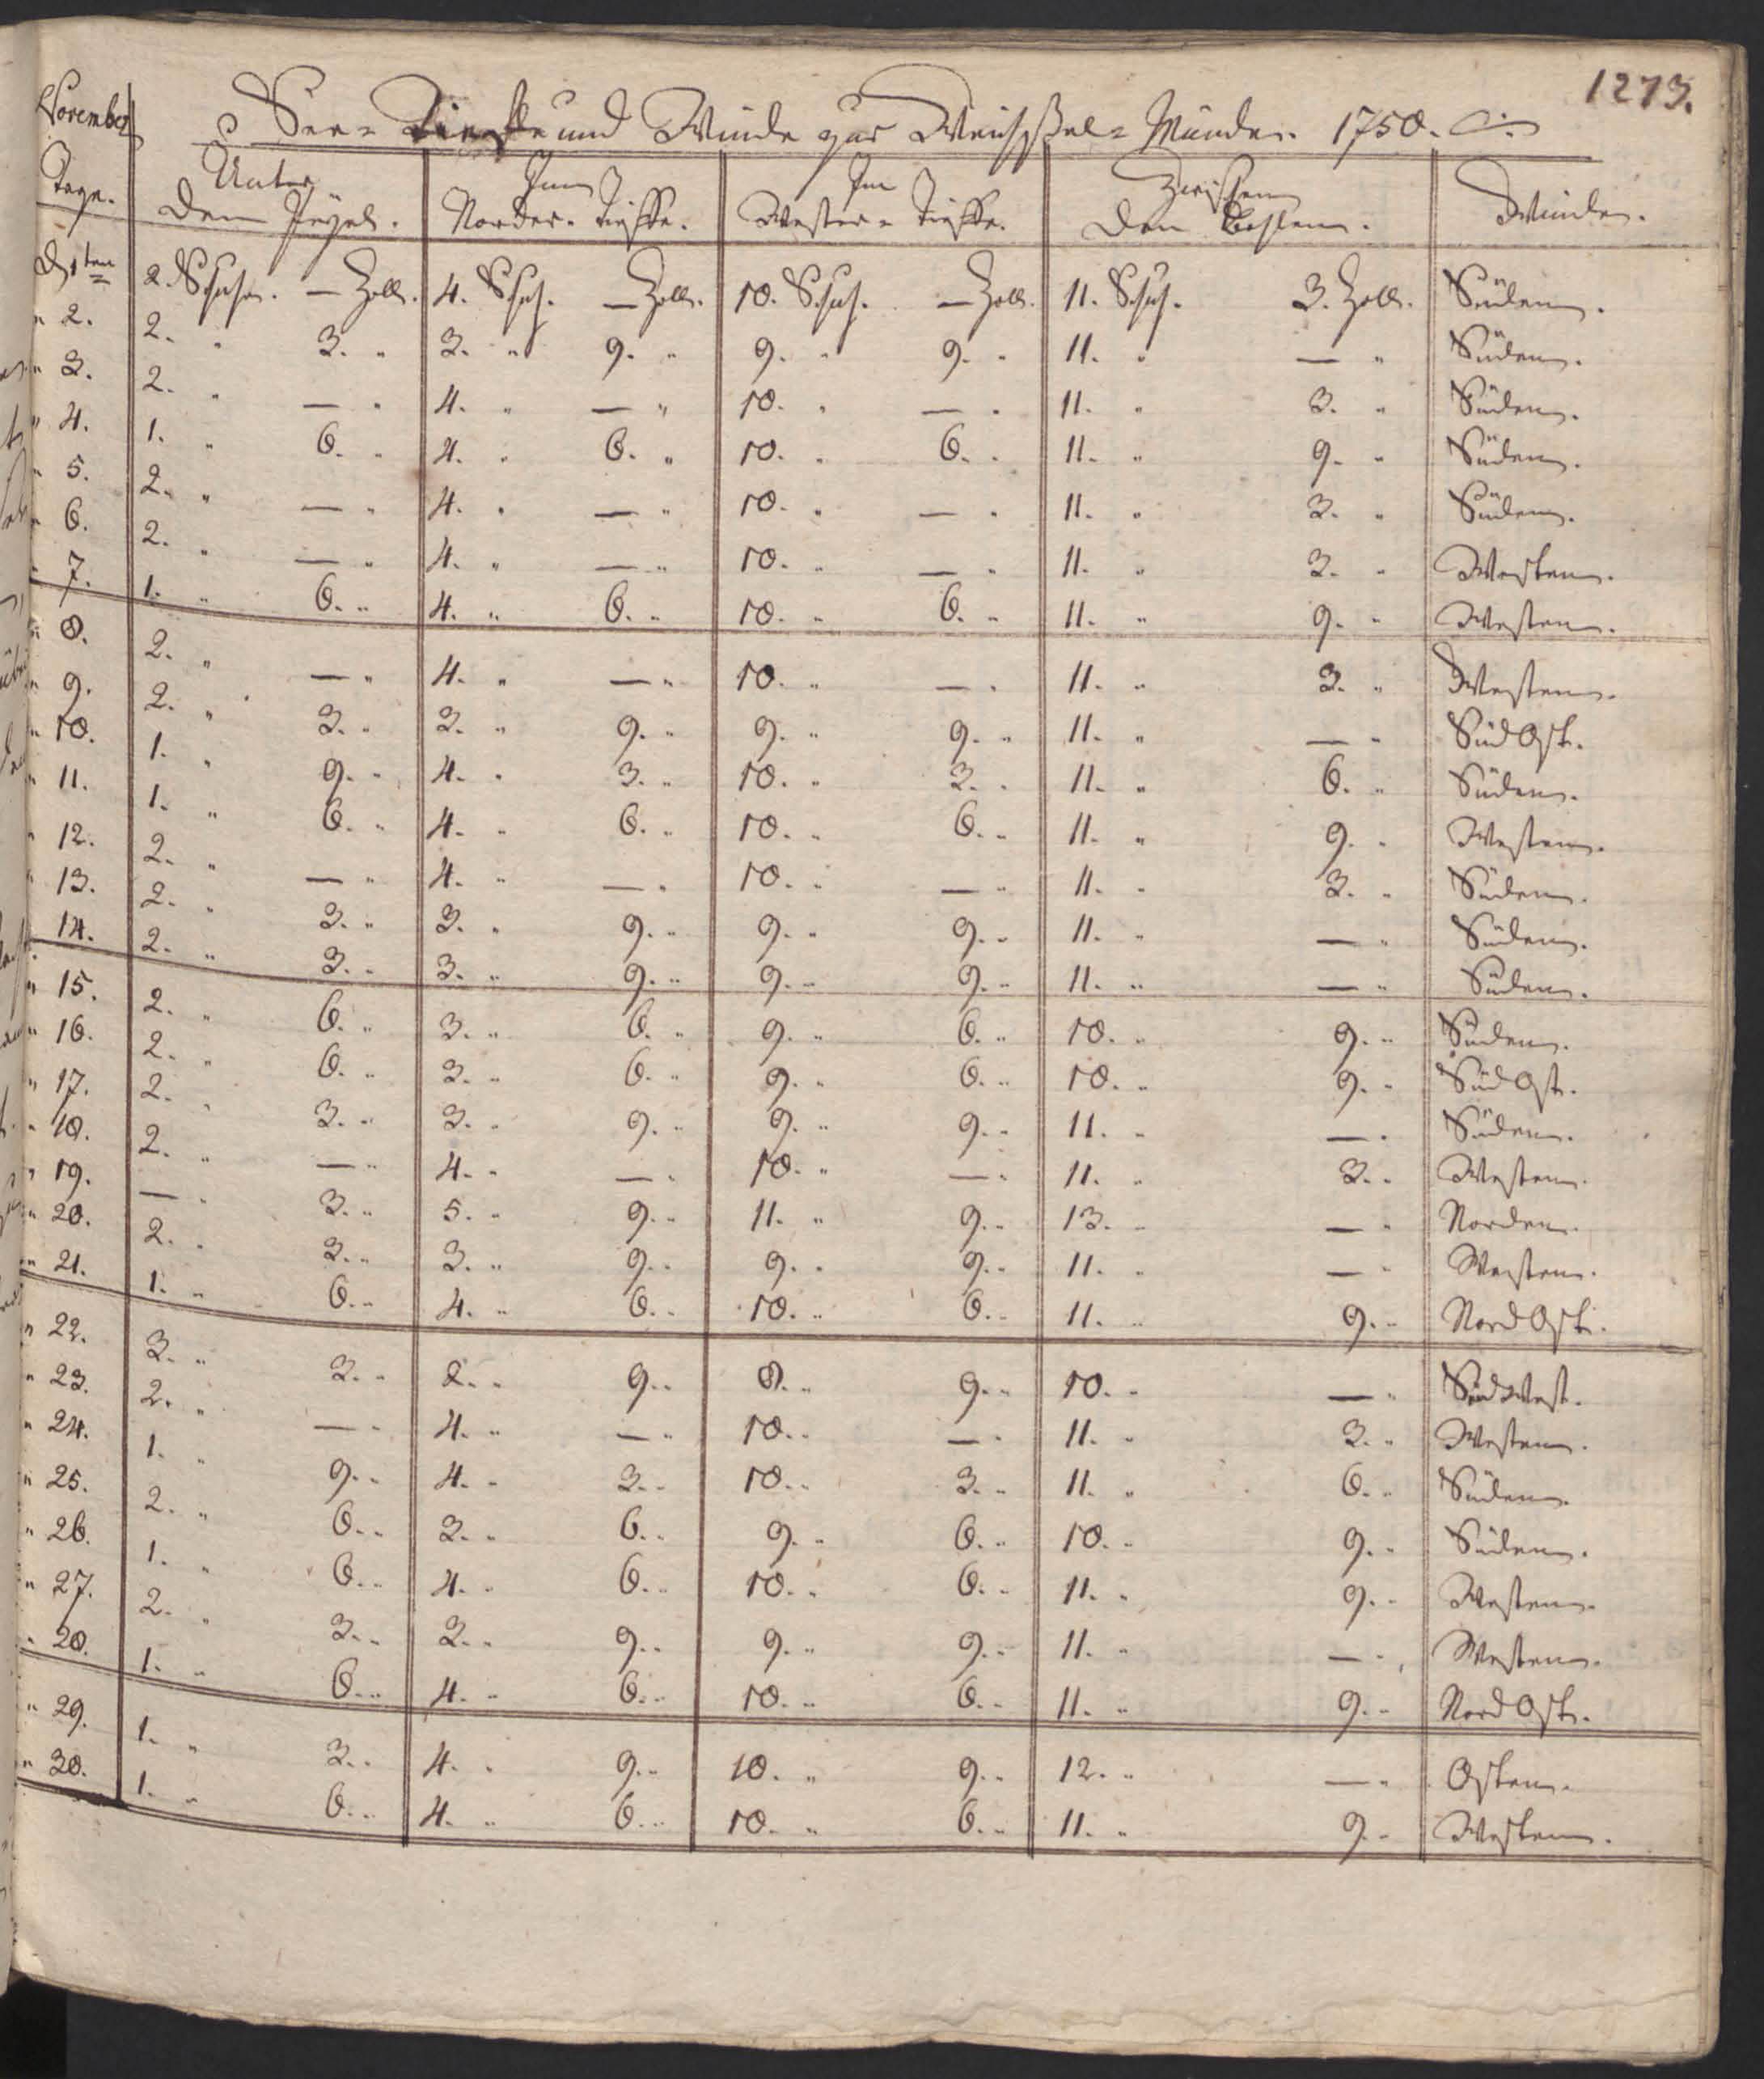 1273.
November See- Tieffe und Winde zur Weichßel- Münde. 1750.
Tage. Unter dem Pegel. Im Norder- Tieffe. Im Wester- Tieffe. Zwischen den Winde.
D 1ten 2. Schuh. — Zoll. 4. Schuh. — Zoll. 10. Schuh. — Zoll. 11. Schuh. 3. Zoll. Süden.
" 2. 2. " 3. " 3. " 9. " 9. " 9. " 11. " — " Süden.
" 3. 2. " — " 4. " — " 10. " — " 11. " 3. " Süden.
" 4. 1. " 6. " 4. " 6. " 10. " 6. " 11. " 9. " Süden.
" 5. 2. " — " 4. " — " 10. " — " 11. " 3. " Süden.
" 6. 2. " — " 4. " — " 10. " — " 11. " 3. " Westen.
" 7. 1. " 6. " 4. " 6. " 10. " 6. " 11. " 9. " Westen.
" 8. 2. " — " 4. " — " 10. " — " 11. " 3. " Westen.
" 9. 2. " 3. " 3. " 9. " 9. " 9. " 11. " — " Süd Ost.
" 10. 1. " 9. " 4. " 3. " 10. " 3. " 11. " 6. " Süden.
" 11. 1. " 6. " 4. " 6. " 10. " 6. " 11. " 9. " Westen.
" 12. 2. " — " 4. " — " 10. " — " 11. " 3. " Süden.
" 13. 2. " 3. " 3. " 9. " 9. " 9. " 11. " — " Süden.
" 14. 2. " 3. " 3. " 9. " 9. " 9. " 11. " — " Süden.
" 15. 2. " 6. " 3. " 6. " 9. " 6. " 10. " 9. " Süden.
" 16. 2. " 6. " 3. " 6. " 9. " 6. " 10. " 9. " Süd Ost.
" 17. 2. " 3. " 3. " 9. " 9. " 9. " 11. " — " Süden.
" 18. 2. " — " 4. " — " 10. " — " 11. " 3. " Westen.
" 19. — " 3. " 5. " 9. " 11. " 9. " 13. " — " Norden.
" 20. 2. " 3. " 3. " 9. " 9. " 9. " 11. " — " Westen.
" 21. 1. " 6. " 4. " 6. " 10. " 6. " 11. " 9. " Nord Ost.
" 22. 3. " 3. " 2. " 9. " 8. " 9. " 10. " — " Südwest.
" 23. 2. " — " 4. " — " 10. " — " 11. " 3. " Westen.
" 24. 1. " 9. " 4. " 3. " 10. " 3. " 11. " 6. " Süden.
" 25. 2. " 6. " 3. " 6. " 9. " 6. " 10. " 9. " Süden.
" 26. 1. " 6. " 4. " 6. " 10. " 6. " 11. " 9. " Westen.
" 27. 2. " 3. " 3. " 9. " 9. " 9. " 11. " — " Westen.
" 28. 1. " 6. " 4. " 6. " 10. " 6. " 11. " 9. " Nord Ost.
" 29. 1. " 3. " 4. " 9. " 10. " 9. " 12. " — " Osten.
" 30. 1. " 6. " 4. " 6. " 10. " 6. " 11. " 9. " Westen.